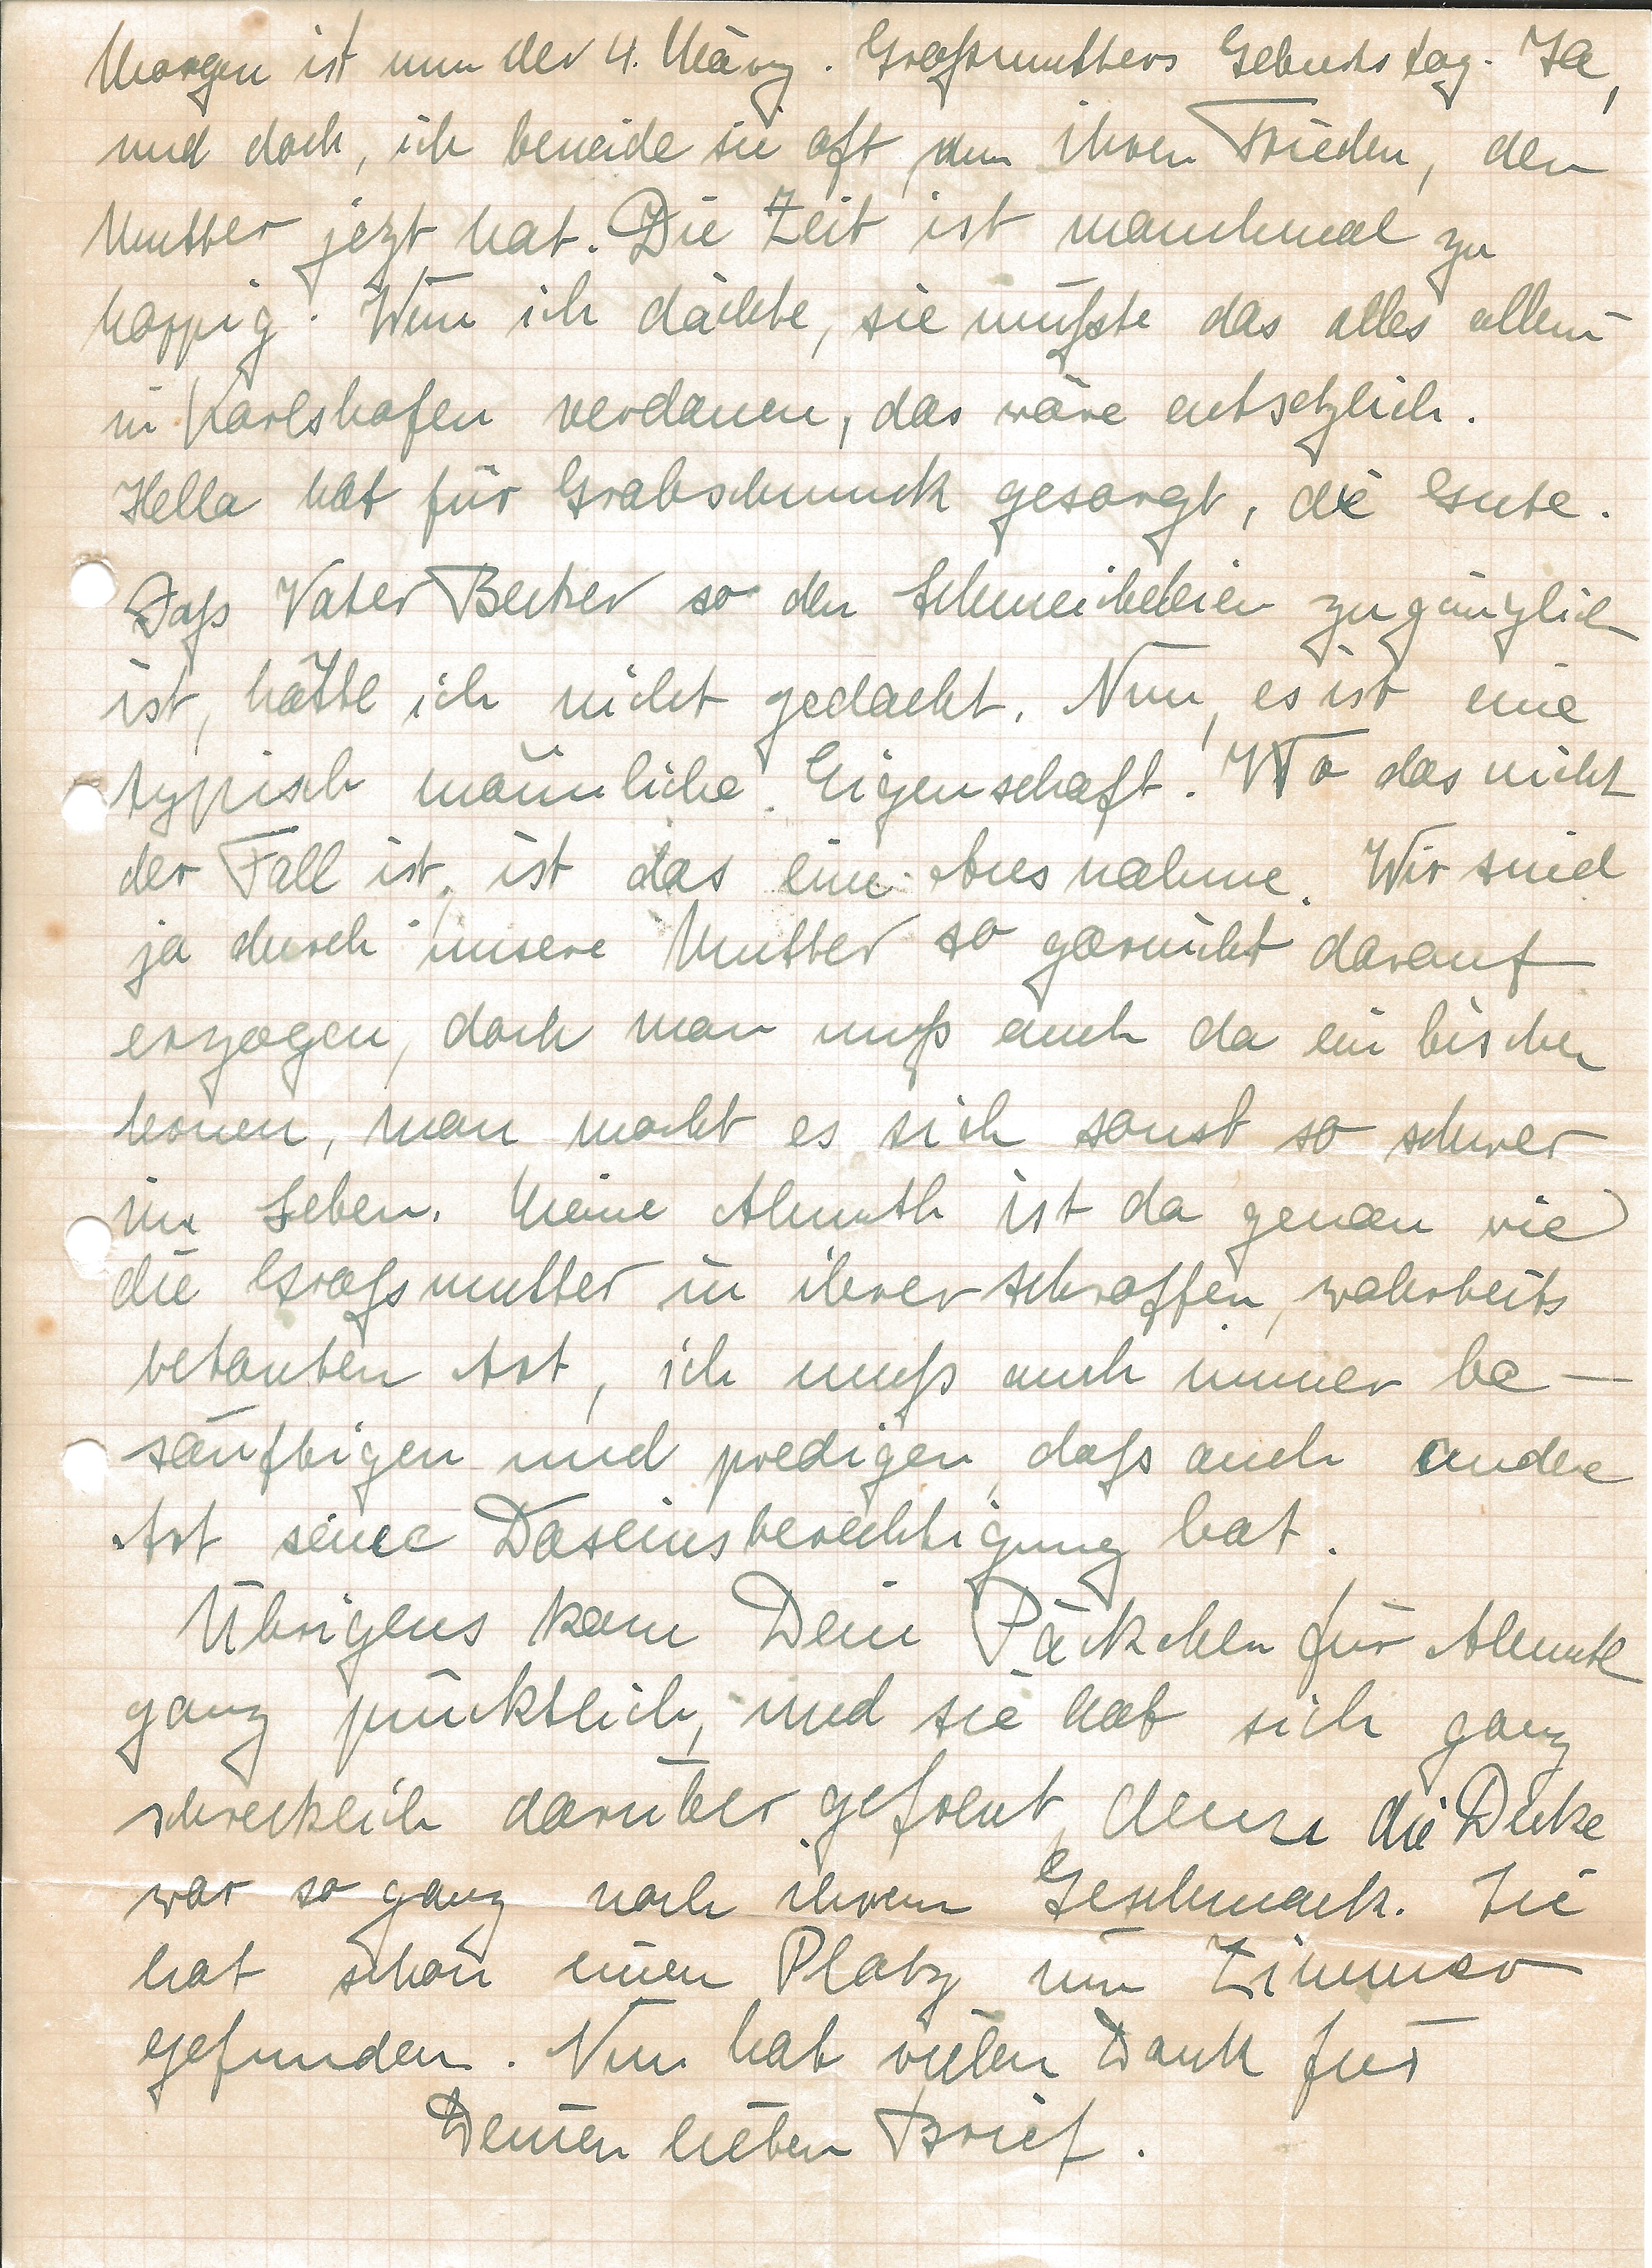 Morgen ist nun der 4. März. Großmutters Geburtstag. Ja,
und doch, ich beneide sie oft um ihren Frieden, den
Mutter jezt hat. Die Zeit ist manchmal zu
happig. Wenn ich dächte, sie müßte das alles allein
in Karlshafen verdauen, das wäre entsetzlich.
Hella hat für Grabschmuck gesorgt, die Gute.
Daß Vater Becker so den Schmeicheleien zugänglich
ist, hätte ich nicht gedacht. Nun, es ist eine
typisch männliche Eigenschaft. Wo das nicht
der Fall ist, ist das eine Ausnahme. Wir sind
ja durch unsere Mutter so garnicht darauf
erzogen, doch man muß auch da ein bischen
lernen, man macht es sich sonst so schwer
im Leben. Meine Almuth ist da genau wie
die Großmutter in ihrer schroffen, wahrheits
betonten Art, ich muß auch immer be-
sänftigen und predigen, daß auch andere
Art seine Daseinsberechtigung hat.
Übrigens kam Dein Päckchen für Almuth
ganz pünktlich, und sie hat sich ganz
schrecklich darüber gefreut, denn die Decke
war so ganz nach ihrem Geschmack. Sie
hat schon einen Platz im Zimmer
gefunden. Nun hab vielen Dank für
Deinen lieben Brief.